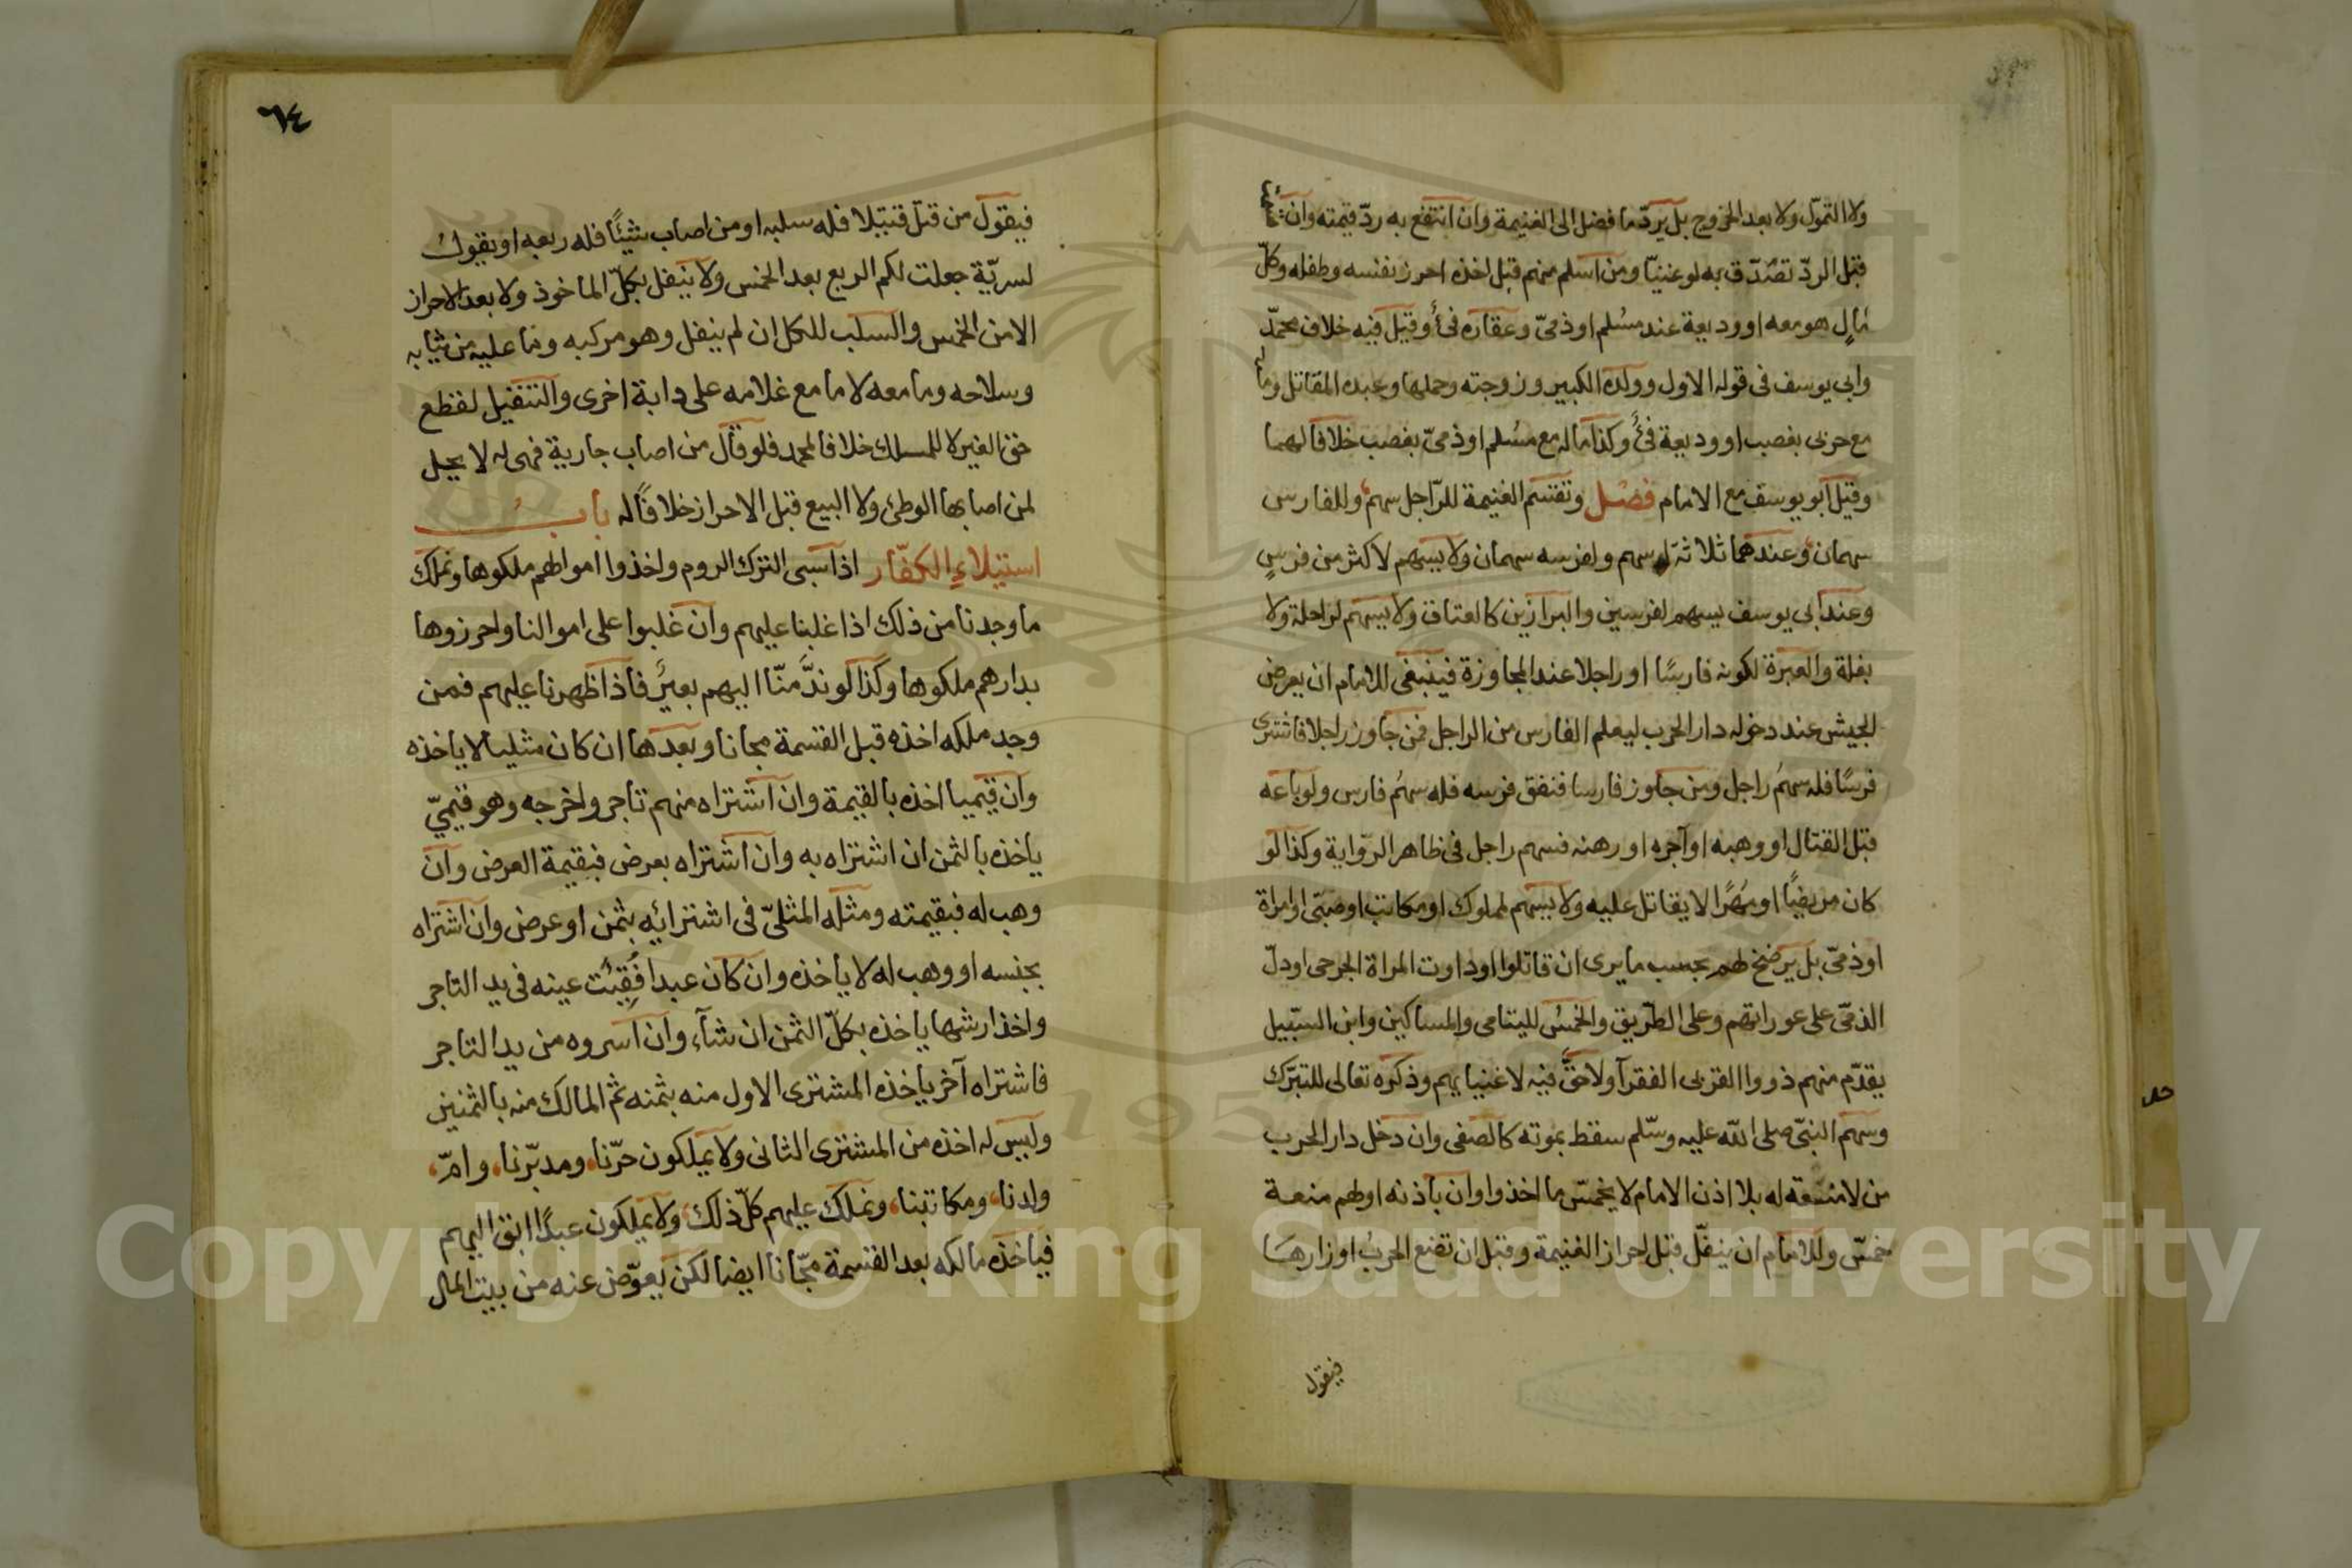 ولا التموّل ولا بعد الخروج بل يردّ ما فضل الى الغنيمة وان انتفع به ردّ قيمته وان
قبل الردّ تصّدّق به لو غنيّا ومن اسلم منهم قبل اخذه احرز نفسه وطفله وكلّ
مالٍ هو معه او وديعة عند مسلم او ذميّ وعقاره فئ وقيل فيه خلاف محمّد
وابى يوسف فى قوله الاول وولده الكبير وزوجته وحملها وعبده المقاتل وماله
مع حربى بغصب او وديعة فئ وكذا ماله مع مسلم او ذميّ بغصب خلافا لهما
وقيل ابو يوسف مع الامام فصل وتقسم الغنيمة للرّاجل سهم وللفارس
سهمان وعندهما ثلاثة له سهم ولفرسه سهمان ولا يسهم لاكثر من فرسٍ
وعند ابى يوسف يسهم لفرسين والبراذين كالعتاق ولا يسهم لراحلة ولا
بغلة والعبرة لكونه فارسًا او راجلا عند المجاوزة فينبغى للامام ان يعرض
الجيش عند دخوله دار الحرب ليعلم الفارس من الراجل فمن جاوز راجلا فاشترى
فرسًا فله سهمُ راجل ومن جاوز فارسا فنفق فرسه فله سهمُ فارس ولو باعه
قبل القتال او وهبه او آجره او رهنه فسهم راجل فى ظاهر الرّواية وكذا لو
كان مريضًا او مُهرًا لا يقاتل عليه ولا يسهم لمملوك او مكاتب او صبّى او امراة
او ذمّى بل يرضخ لهم بحسب ما يرى ان قاتلوا او داوت المراة الجرحى او دلّ
الذمّى على عوراتهم وعلى الطّريق والخمسُ لليتامى والمساكين وابن السّبيل
يقدّم منهم ذووا القربى الفقرآء ولا حقَّ فيه لاغنيايهم وذكره تعالى للتبرّك
وسهم النبىّ صلى الله عليه وسّلم سقط بموته كالصفى وان دخل دار الحرب
من لا منعة له بلا اذن الامام لا يخمسّ ما اخذوا وان باذنه او لهم منعة
خمسّ وللامام ان ينفّل قبل احراز الغنيمة وقبل ان تضع الحربُ اوزارها
فيقول
٦٤
فيقول من قتل قتيلا فله سلبه او من اصاب شيئًا فله ربعه او يقول
لسريّة جعلت لكم الربع بعد الخمس ولا ينفل بكلّ الماخوذ ولا بعد الاحراز
الا من الخمس والسلب للكل ان لم ينفل وهو مركبه وما عليه من ثيابه
وسلاحه وما معه لا ما مع غلامه على دابة اخرى والتنفيل لقطع
حق الغير لا للملك خلافا لمحمد فلو قال من اصاب جارية فهى له لا يحل
لمن اصابها الوطئ ولا البيع قبل الاحراز خلافًا له بابُ
استيلاءِ الكفّار اذا سبى الترك الروم واخذوا اموالهم ملكوها ونملك
ما وجدنا من ذلك اذا غلبنا عليهم وان غلبوا على اموالنا واحرزوها
بدارهم ملكوها وكذا لو ندَّ منّا اليهم بعيرٌ فاذا ظهرنا عليهم فمن
وجد ملكه اخذه قبل القسمة مجانا وبعدها ان كان مثليا لا ياخذه
وان قيميا اخذه بالقيمة وان اشتراه منهم تاجر واخرجه وهو قيميّ
ياخذه بالثمن ان اشتراه به وان اشتراه بعرض فبقيمة العرض وان
وهب له فبقيمته ومثله المثلىّ فى اشترائه بثمن او عرض وان اشتراه
بجنسه او وهب له لا ياخذه وان كان عبدا فُقِئت عينه فى يد التاجر
واخذ ارشها ياخذه بكلّ الثمن ان شآء وان اسروه من يد التاجر
فاشتراه آخر ياخذه المشترى الاول منه بثمنه ثم المالك منه بالثمنين
وليس له اخذه من المشترى الثانى ولا يملكون حرّنا، ومدبّرنا، وامّ،
ولدنا، ومكاتبنا، ونملك عليهم كلّ ذلك ولا يملكون عبدًا ابق اليهم
فياخذه مالكه بعد القسمة مجّانا ايضا لكن يعوّض عنه من بيت المال
1957
Copyright © King Saud University